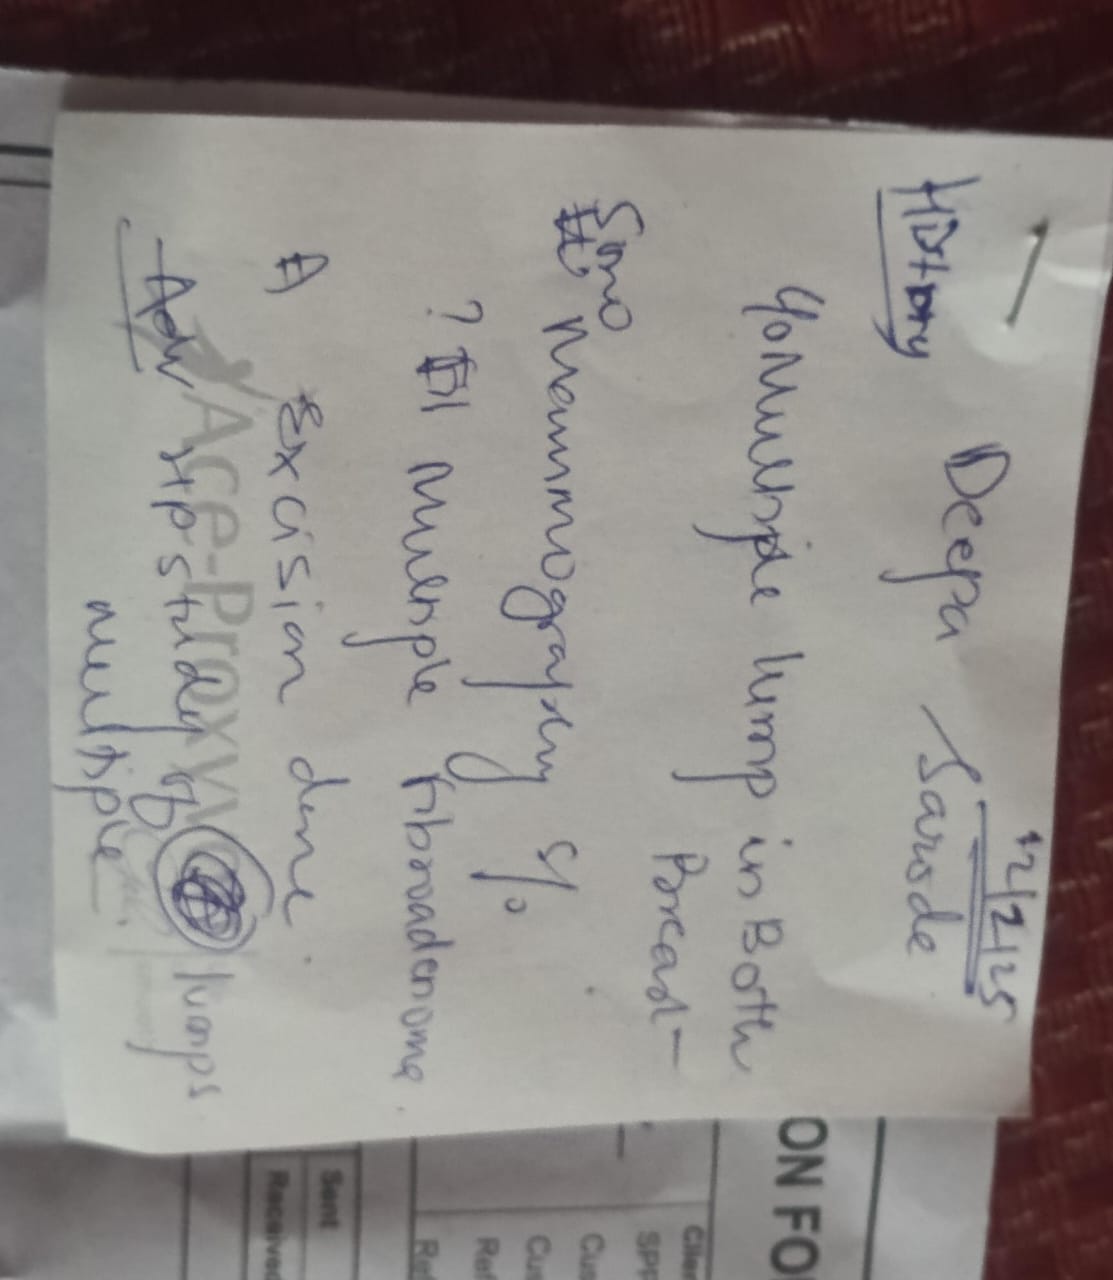 12/2/25
History Deepa Sarode
c/o Multiple lump in Both
Breast
Sono Mammography s/o
? Multiple fibroadenoma
Excision done.
Adv HP study of lumps
multiple.
Ace-Proxyvo
ON FO
Clien
SPP
Cus
Cus
Ref
Ref
Sent
Received